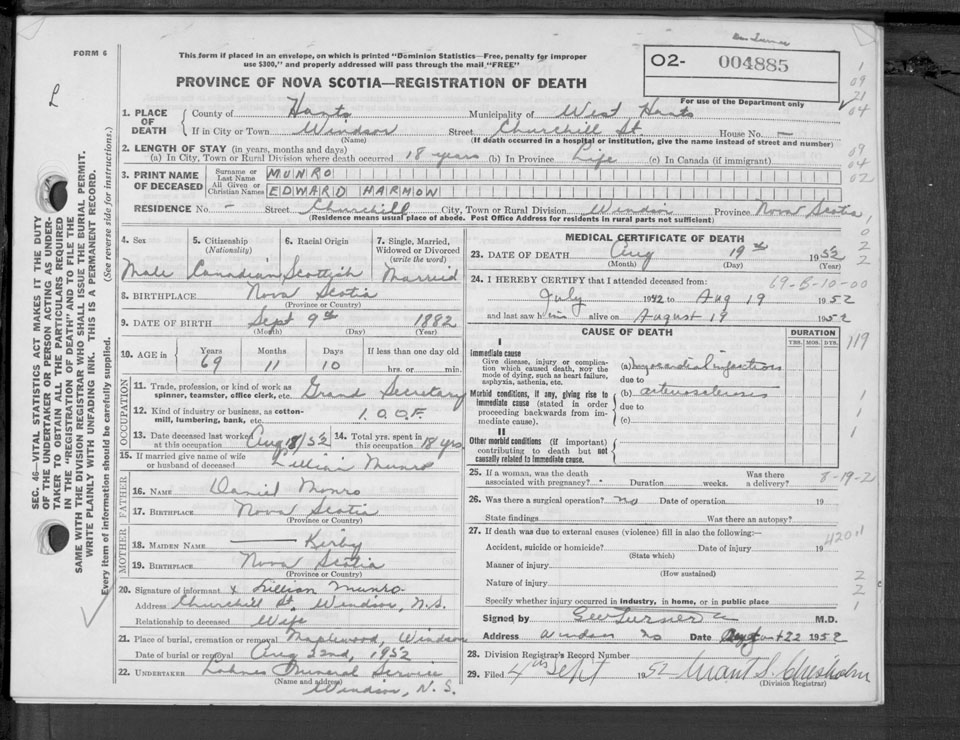 FORM 6
This form if placed in an envelope, on which is printed "Dominion Statistics—Free, penalty for improper
use $300," and properly addressed will pass through the mail "FREE"
PROVINCE OF NOVA SCOTIA—REGISTRATION OF DEATH
O2- 004885
For use of the Department only
1. PLACE OF DEATH
County of Hants Municipality of West Hants
If in City or Town Windsor Street Churchill St. House No. —
(Name) (If death occurred in a hospital or institution, give the name instead of street and number)
2. LENGTH OF STAY (in years, months and days)
(a) In City, Town or Rural Division where death occurred 18 years (b) In Province Life (c) In Canada (if immigrant)
3. PRINT NAME OF DECEASED
Surname or Last Name MUNRO
All Given or Christian Names EDWARD HARMON
RESIDENCE No. - Street Churchill City, Town or Rural Division Windsor Province Nova Scotia
(Residence means usual place of abode. Post Office Address for residents in rural parts not sufficient)
4. Sex 5. Citizenship (Nationality) 6. Racial Origin 7. Single, Married, Widowed or Divorced (write the word)
Male Canadian Scottish Married
8. BIRTHPLACE Nova Scotia
(Province or Country)
9. DATE OF BIRTH Sept 9th 1882
(Month) (Day) (Year)
10. AGE is Years Months Days If less than one day old
69 11 10 hrs. or min.
OCCUPATION
11. Trade, profession, or kind of work as spinner, teamster, office clerk, etc. Grand Secretary
12. Kind of industry or business, as cotton-mill, lumbering, bank, etc. I.O.O.F.
13. Date deceased last worked at this occupation Aug 18/52 14. Total yrs. spent in this occupation 18 yrs
15. If married give name of wife or husband of deceased Lillian Munro
FATHER
16. NAME Daniel Munro
17. BIRTHPLACE Nova Scotia
(Province or Country)
MOTHER
18. MAIDEN NAME — Kirby
19. BIRTHPLACE Nova Scotia
(Province or Country)
20. Signature of informant x Lillian Munro
Address Churchill St. Windsor, N.S.
Relationship to deceased Wife
21. Place of burial, cremation or removal Maplewood, Windsor
Date of burial or removal Aug 22nd, 1952
22. UNDERTAKER Funeral Service
(Name and address)
Windsor, N.S.
MEDICAL CERTIFICATE OF DEATH
23. DATE OF DEATH Aug 19th 1952
(Month) (Day) (Year)
69-B-10-00
24. I HEREBY CERTIFY that I attended deceased from:
July 1942 to Aug 19 1952
and last saw him alive on August 19 1952
CAUSE OF DEATH DURATION
YRS. MOS. DYS.
119
I
Immediate cause
Give disease, injury or complication which caused death, not the mode of dying, such as heart failure, asphyxia, asthenia, etc.
(a) Myocardial infarction
due to
Morbid conditions, if any, giving rise to immediate cause (stated in order proceeding backwards from immediate cause).
(b) arteriosclerosis
due to
(c)
II
Other morbid conditions (if important) contributing to death but not causally related to immediate cause.
25. If a woman, was the death associated with pregnancy? Duration weeks. Was there a delivery?
8-19-2
26. Was there surgical operation? no Date of operation 19
State findings Was there an autopsy?
27. If death was due to external causes (violence) fill in also the following:—
Accident, suicide or homicide? Date of injury 19
(State which)
4201
Manner of injury
(How sustained)
Nature of injury
Specify whether injury occurred in industry, in home, or in public place
Signed by Geo Turner M.D.
Address Windsor NS Date August 22 1952
28. Division Registrar's Record Number
29. Filed 4th Sept 1952 Grant S. Chisholm
(Division Registrar)
SEC. 46—VITAL STATISTICS ACT MAKES IT THE DUTY
OF THE UNDERTAKER OR PERSON ACTING AS UNDER-
TAKER TO OBTAIN ALL THE PARTICULARS REQUIRED
IN THE "REGISTRATION OF DEATH" AND TO FILE THE
SAME WITH THE DIVISION REGISTRAR WHO SHALL ISSUE THE BURIAL PERMIT.
WRITE PLAINLY WITH UNFADING INK. THIS IS A PERMANENT RECORD.
Every item of information should be carefully supplied. (See reverse side for instructions.)